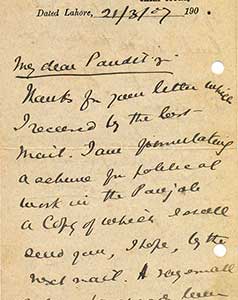 Dated Lahore, 21/3/07 190 .
My dear Pandit ji
Thanks for your letter which
I received by the last
mail. I am formulating
a scheme for political
work in the Punjab
a Copy of which I shall
send you, I hope, by the
next mail. A very small